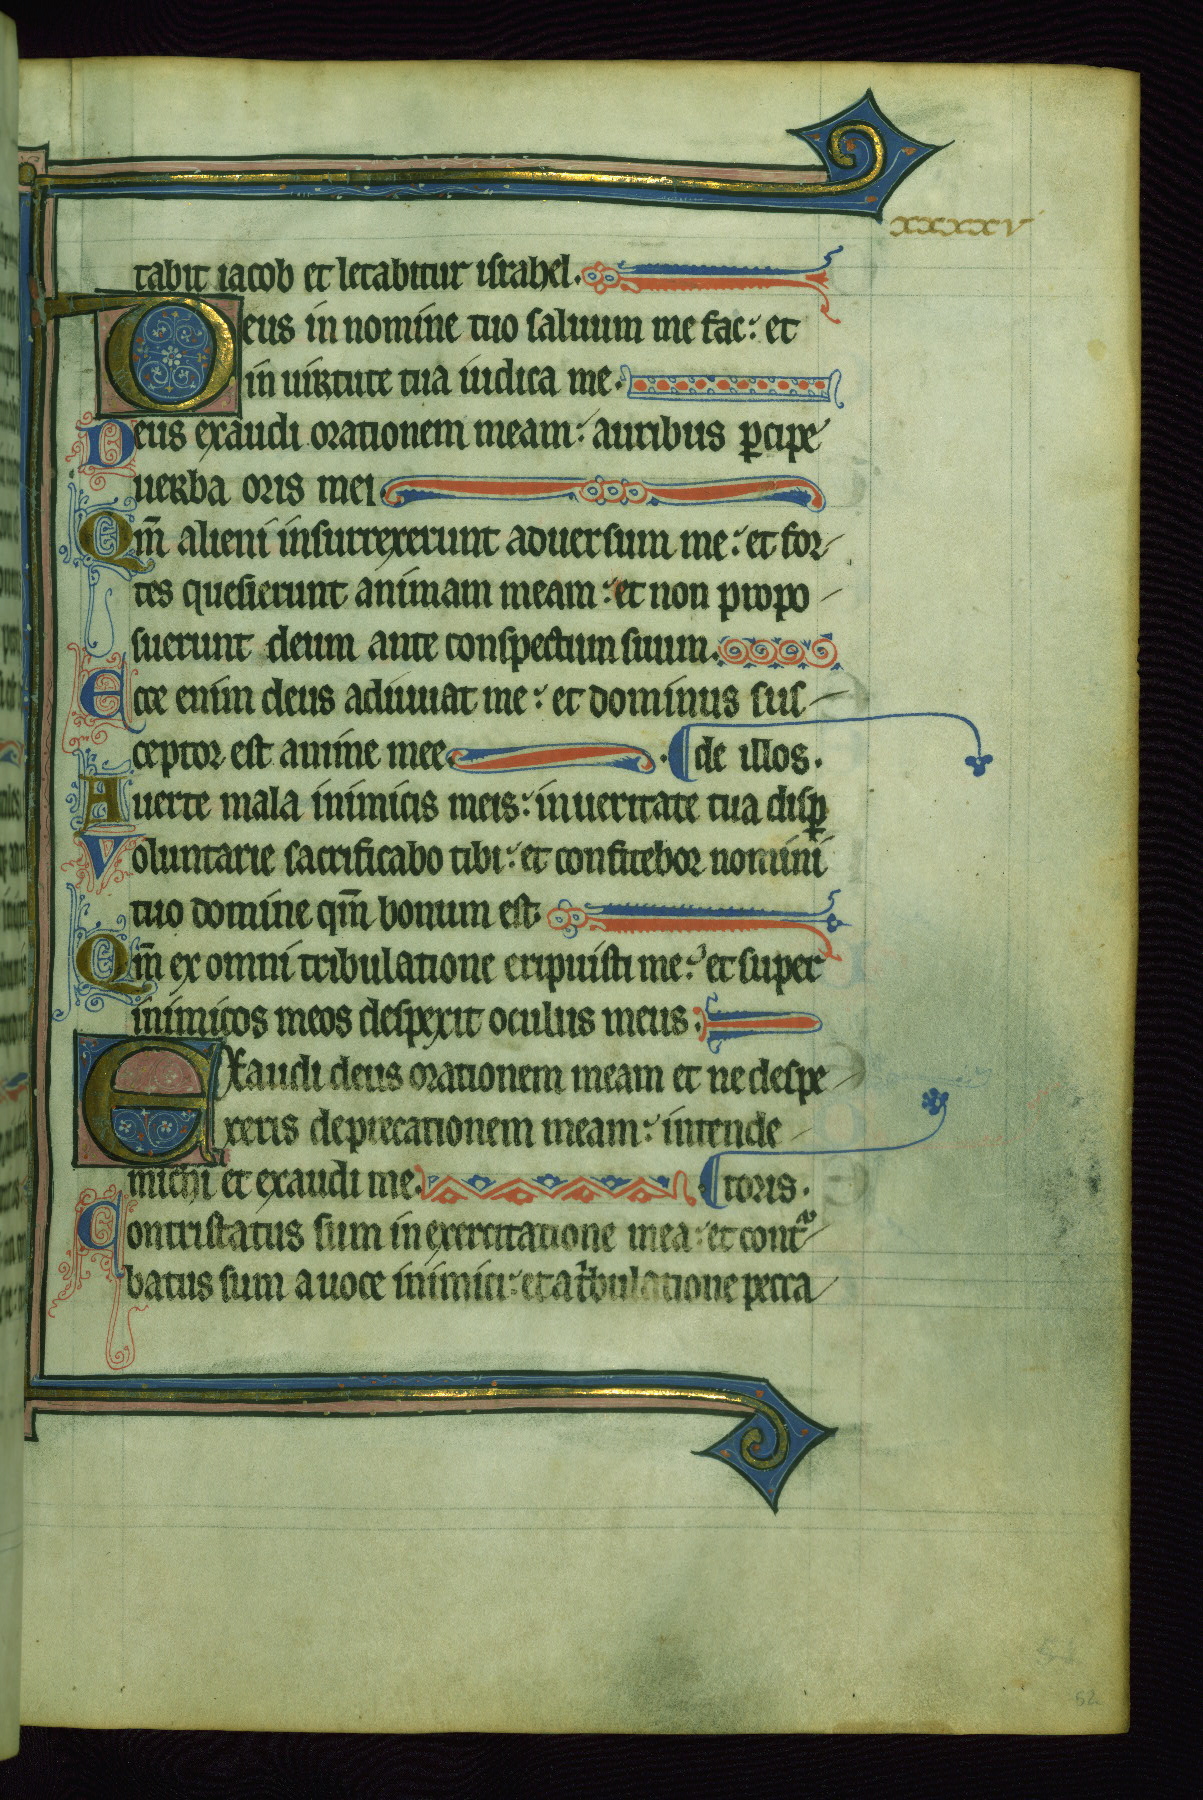 xxxxv
tabit iacob et letabitur israhel.
Deus in nomine tuo saluum me fac: et
in uirtute tua iudica me.
Deus exaudi orationem meam: auribus ꝑcipe
uerba oris mei
Qm̄ alieni insurrexerunt aduersum me: et for
tes quesierunt animam meam: et non propo
suerunt deum ante conspectum suum.
Ecce enim deus adiuuat me: et dominus sus
ceptor est anime mee. de illos.
Auerte mala inimicis meis: in ueritate tua disꝑ
Voluntarie sacrificabo tibi: et confitebor nomini
tuo domine qm̄ bonum est.
Qm̄ ex omni tribulatione eripuisti me: et super
inimicos meos despexit oculus meus.
Exaudi deus orationem meam et ne despe
xeris deprecationem meam: intende
michi et exaudi me. toris.
Contristatus sum in exercitatione mea: et cont
batus sum a uoce inimici: et a tͥbulatione pecca
51
52